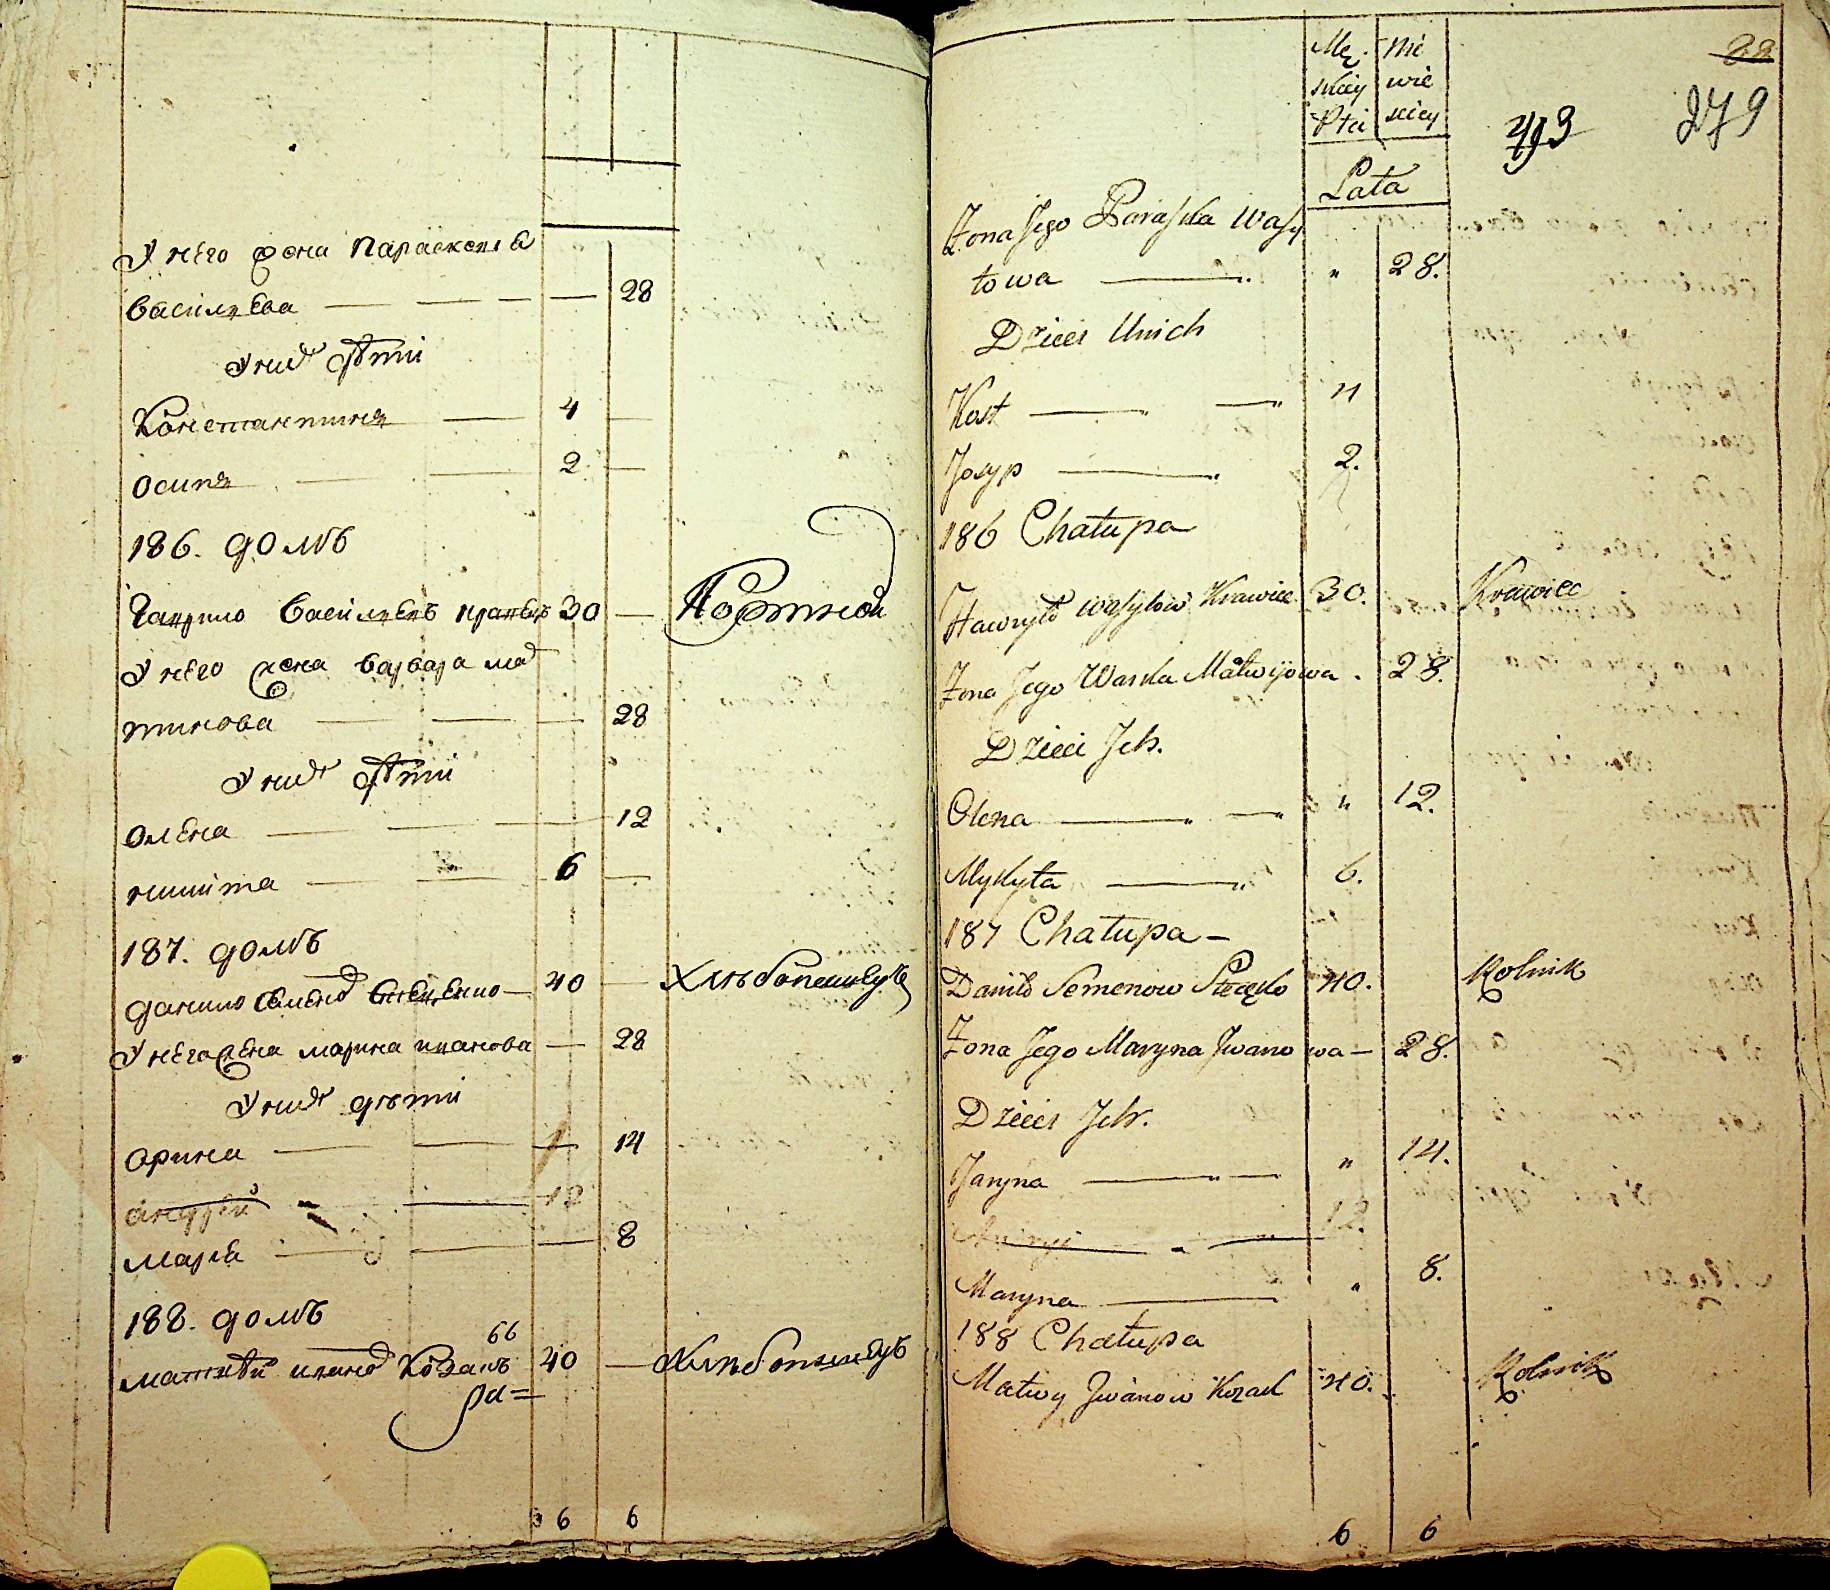 У него жена Параскевіа
Василѣва — — — — 28
У них дѣти
Константинъ — 4 —
Осипъ — 2 —
186. домъ
Гаврило Василѣвъ Кравецъ 30 — Портной
У него жена Варвара Мат
тинова — — — 28
У них дѣти
Олена — — — 12
Никита — — 6 —
187. домъ
Данило Семенов 40 — Хлѣбопашецъ
У него жена Марина Иванова — 28
У них дѣти
Орина — — — 14
Андрей — — 12
Маріа — — — 8
188. домъ
66
Матвѣй Иванов Козакъ 40 — Хлѣбопашецъ
6 6
Mę Nie
skiey wie
Płci sciey
Lata
22
279
Zona Jego Paraska Wasy
lowa — " 28.
Dzieci Unich
Kost — — 4
Josyp — 2.
186 Chałupa
Hawryło Wasylow Krawiec 30. Krawiec
Zona Jego Warka Matwijowa . 28.
Dzieci Ich.
Olena — — " 12.
Mykyta — 6.
187 Chałupa —
Daniło Semenow 40. Rolnik
Zona Jego Maryna Iwanowa — 28.
Dzieci Ich.
Jaryna — — " 14.
12.
Maryna — " 8.
188 Chałupa
Matwy Iwanow Kozak 40. Rolnik
6 6